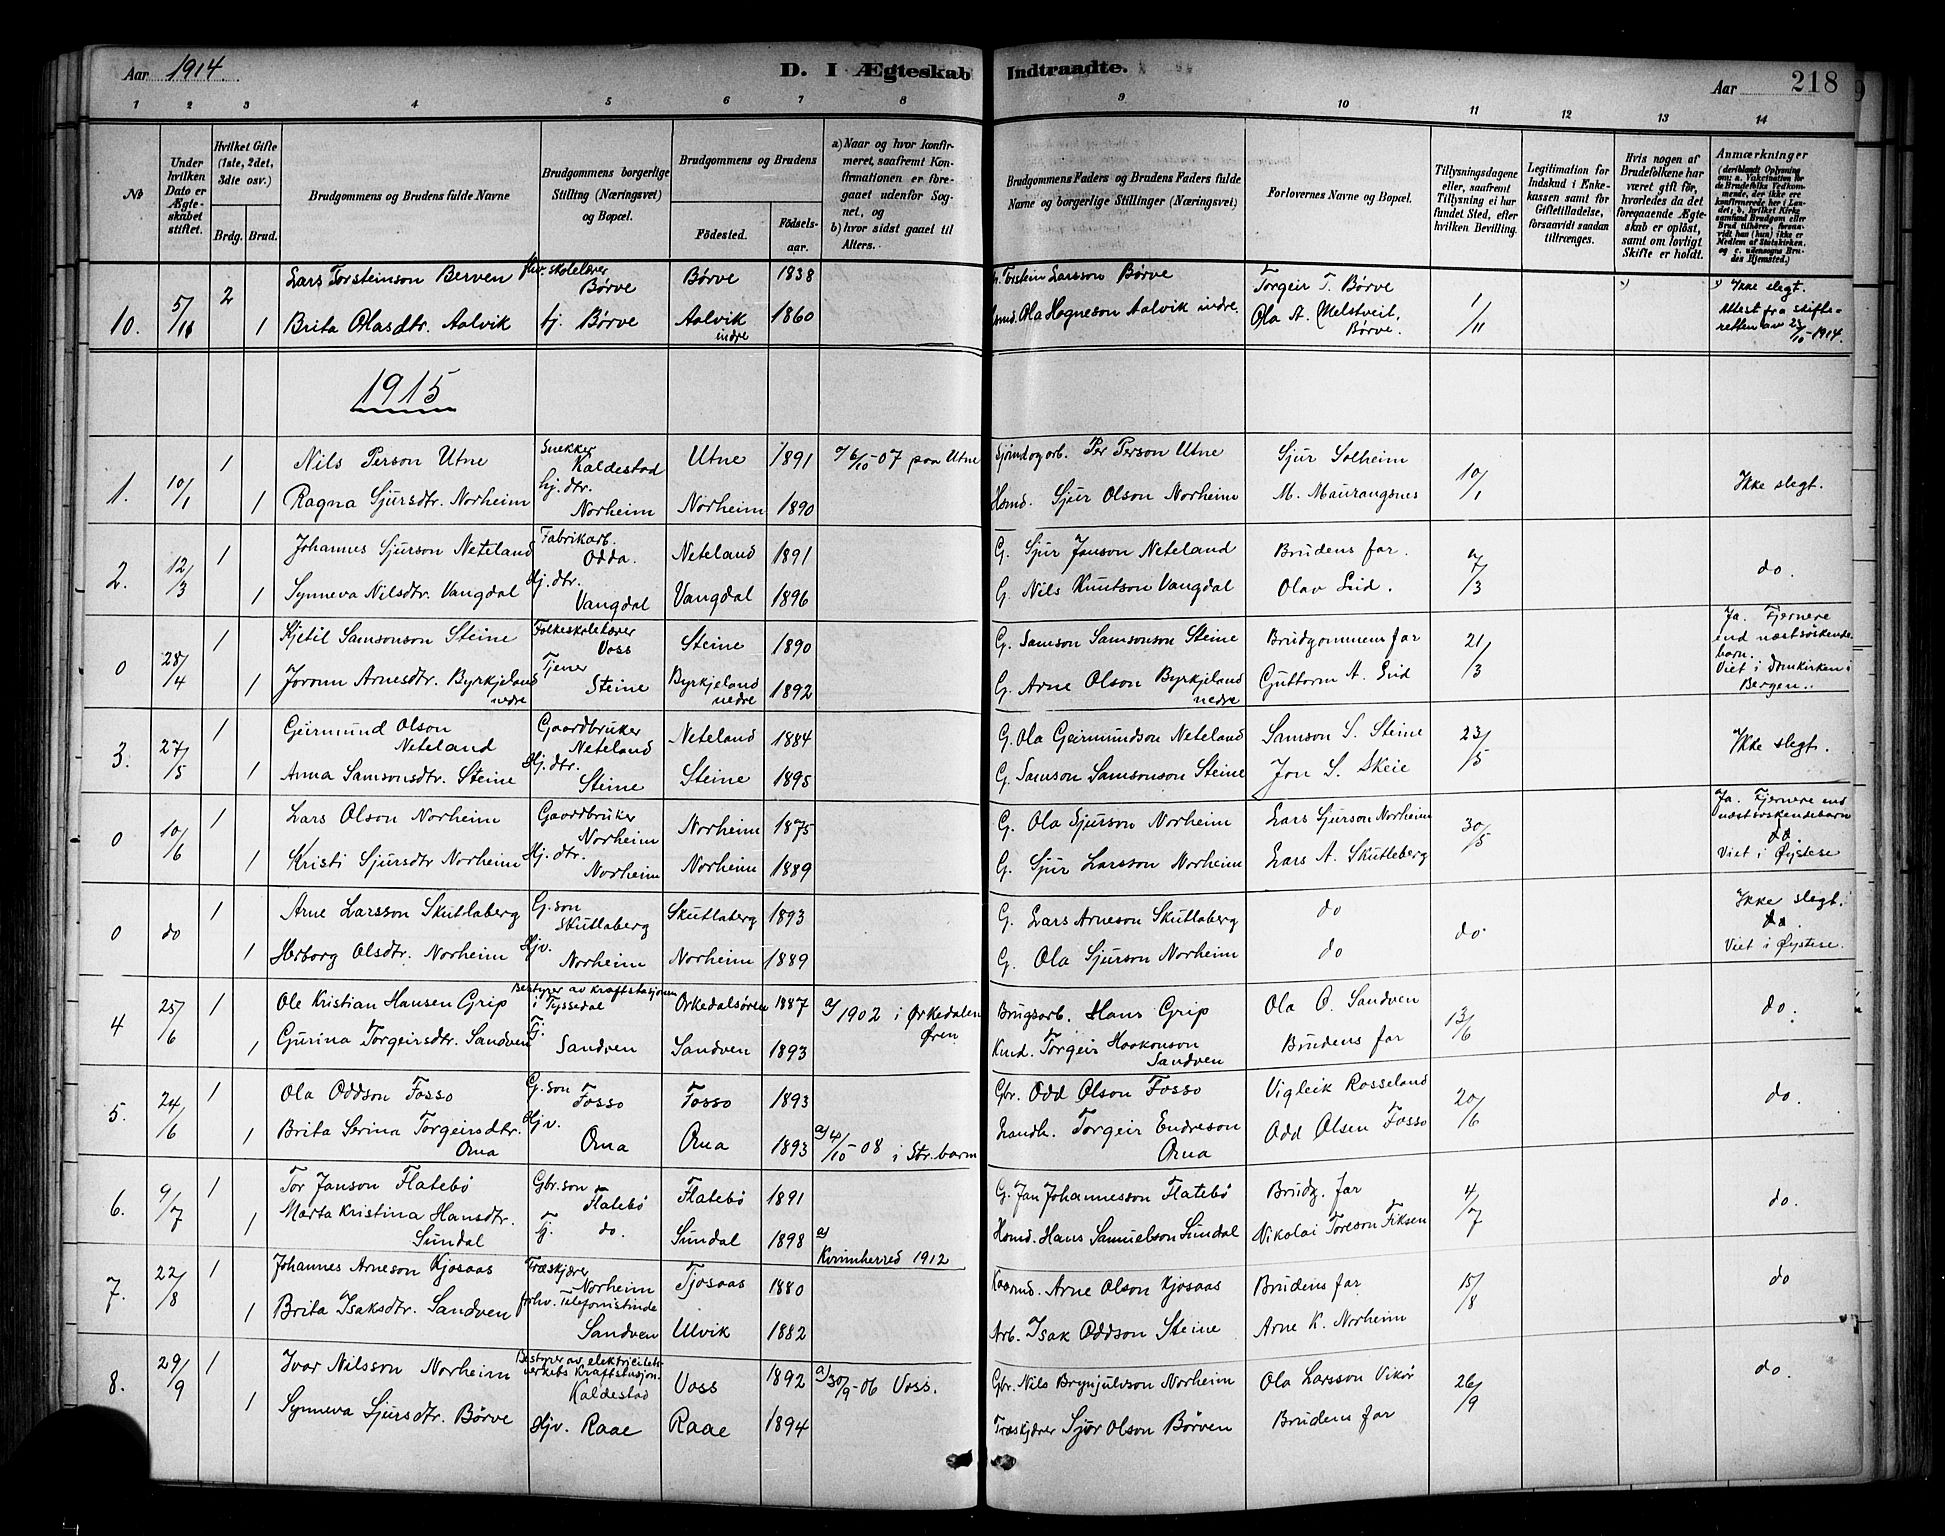 Aar 1914.
D. I Ægteskab Indtraadte.
Aar 218
1 2 3 4 5 6 7 8 9 10 11 12 13 14
No
Under hvilken Dato er Ægteskabet stiftet.
Hvilket Gifte (1ste, 2det, 3die osv.)
Brdg. Brud.
Brudgommens og Brudens fulde Navne
Brudgommens borgerlige Stilling (Næringsvei) og Bopæl.
Brudgommens og Brudens
Födested.
Födselsaar.
a) Naar og hvor konfirmeret, saafremt Konfirmationen er foregaaet udenfor Sognet, og
b) hvor sidst gaaet til Alters.
Brudgommens Faders og Brudens Faders fulde Navne og borgerlige Stillinger (Næringsvei)
Forlovernes Navne og Bopæl.
Tillysningsdagene eller, saafremt Tillysning ei har fundet Sted, efter hvilken Bevilling.
Legitimation for Indskud i Enkekassen samt for Giftetilladelse, forsaavidt saadan tiltrænges.
Hvis nogen af Brudefolkene har været gift för, hvorledes da det foregaaende Ægteskab er oplöst, samt om lovligt Skifte er holdt.
Anmærkninger
10. 5/11 2 Lars Torsteinson Berven fhv. skolelærer Börve Börve 1838 Torstein Larsson Börve Torgeir T. Börve 1/11 Ikke slegt.
1 Brita Olasdtr. Aalvik tj. Börve Aalvik indre 1860 Ola Hogneson Aalvik indre. Ola A. Melstveit, Börve. Attest fra skifteretten av 23/10-1914.
1915
1. 10/1 1 Nils Person Utne Snekker Kaldestad Utne 1891 a/ 6/10-07 paa Utne Per Person Utne Sjur Solheim 10/1 Ikke slegt.
1 Ragna Sjursdtr. Norheim hj. dtr. Norheim Norheim 1890 Hsmd. Sjur Olson Norheim M. Maurangsnes
2. 12/3 1 Johannes Sjurson Neteland Fabrikarb. Odda. Neteland 1891 G. Sjur Janson Neteland Brudens far. 7/3 do.
1 Synneva Nilsdtr. Vangdal Hj. dtr. Vangdal Vangdal 1896 G. Nils Knutson Vangdal Olav Eid.
0 28/4 1 Kjetil Samsonson Steine Folkeskolelærer Voss Steine 1890 G. Samson Samsonson Steine Brudgommens far 21/3 Ja. Fjernere end næstsöskendebarn. Viet i domkirken i Bergen.
1 Joronn Arnesdtr. Byrkjeland nedre Tjener Steine Byrkjeland nedre 1892 G. Arne Olson Byrkjeland nedre Guttorm A. Eid
3. 27/5 1 Geirmund Olson Neteland Gaardbruker Neteland Neteland 1884 G. Ola Geirmundson Neteland Samson S. Steine 23/5 Ikke slegt.
1 Anna Samsonsdtr. Steine Hj. dtr. Steine Steine 1895 G. Samson Samsonson Steine Jon S. Skeie
0 10/6 1 Lars Olson Norheim Gaardbruker Norheim Norheim 1875 G. Ola Sjurson Norheim Lars Sjurson Norheim 30/5 Ja. Fjernere end næstsöskendebarn
1 Kristi Sjursdtr Norheim Hj. dtr. Norheim Norheim 1889 G. Sjur Larsson Norheim Lars A. Skutleberg Viet i Öystese
0 do 1 Arne Larsson Skutlaberg G. son Skutlaberg Skutlaberg 1893 G. Lars Arneson Skutlaberg do do Ikke slegt.
1 Herborg Olsdtr. Norheim Hjv. Norheim Norheim 1889 G. Ola Sjurson Norheim do Viet i Öystese.
4 25/6 1 Ole Kristian Hansen Grip Bestyrer av kraftstasjonen i Tyssedal Orkedalsören 1887 a/ 1902 i Orkedalen Ören Brugsarb. Hans Grip Ola O. Sandven 13/6 do.
1 Gurina Torgeirsdtr. Sandven Tj. Sandven Sandven 1893 Torgeir Haakonson Sandven Brudens far
5. 24/6 1 Ola Oddson Fosso G. son Fosso Fosso 1893 Gbr. Odd Olson Fosso Vigleik Rosseland 20/6 do.
1 Brita Serina Torgeirsdtr. Oma Hjv. Oma Oma 1893 a/ 4/10-08 i Str.barm Landh. Torgeir Endreson Oma Odd Olsen Fosso
6. 9/7 1 Tor Janson Flatebö Gbr. son Flatebö Flatebö 1891 G. Jan Johannesson Flatebö Brudg. far 4/7 do.
1 Marta Kristina Hansdtr. Sundal Tj. do. Sundal 1898 a/ Kvinnherred 1912 Hsmd. Hans Samuelson Sundal Nikolai Toreson Fiksen
7. 22/8 1 Johannes Arneson Kjosaas Træskjærer Norheim Tjosaas 1880 Arne Olson Kjosaas Brudens far 15/8 do
1 Brita Isaksdtr. Sandven forhv. Telefonistinde Sandven Ulvik 1882 Arb. Isak Oddson Steine Arne K. Norheim
8. 29/9 1 Ivar Nilsson Norheim Bestyrer av elektricitetsverkets kraftstasjon. Kaldestad Voss 1892 a/ 30/9-06 Voss. Gbr. Nils Brynjulvson Norheim Ola Larsson Vikör 26/9 do.
1 Synneva Sjursdtr. Börve Hjv. Raae Raae 1894 Træskjærer Sjur Olson Börven Brudens far